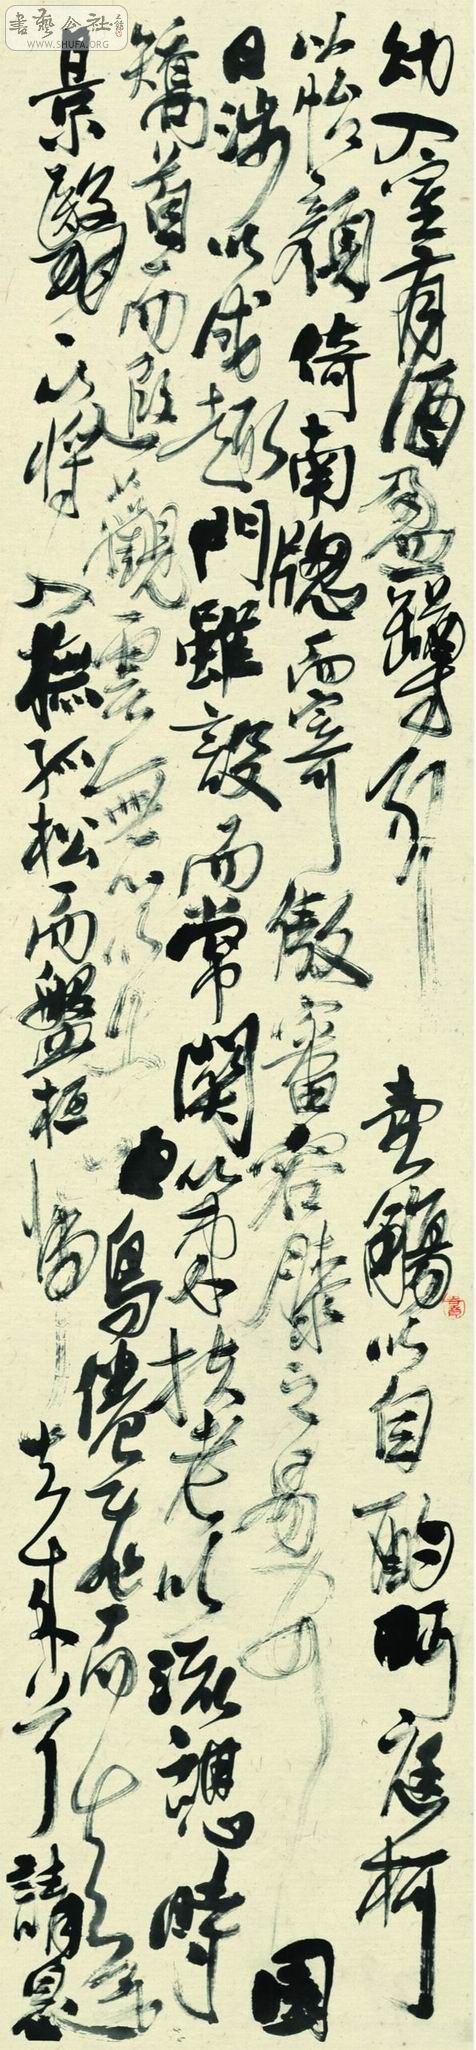 書藝公社
WWW.SHUFA.ORG
幼入室有酒盈罇引壺觴以自酌眄庭柯
以怡顏倚南牕而寄傲審容膝之易安園
日涉以成趣門雖設而常關策扶老以流憩時
矯首而遐觀雲無心以出岫鳥倦飛而知還
景翳翳以將入撫孤松而盤桓歸去來兮請息